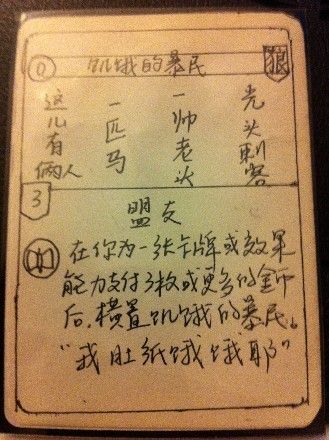 0 饥饿的暴民 狼
这儿有俩人
一匹马
一帅老头
光头刺客
3
盟友
在你为一张卡牌或效果
能力支付3枚或更多的金币
后,横置饥饿的暴民。
“我肚纸饿饿耶”